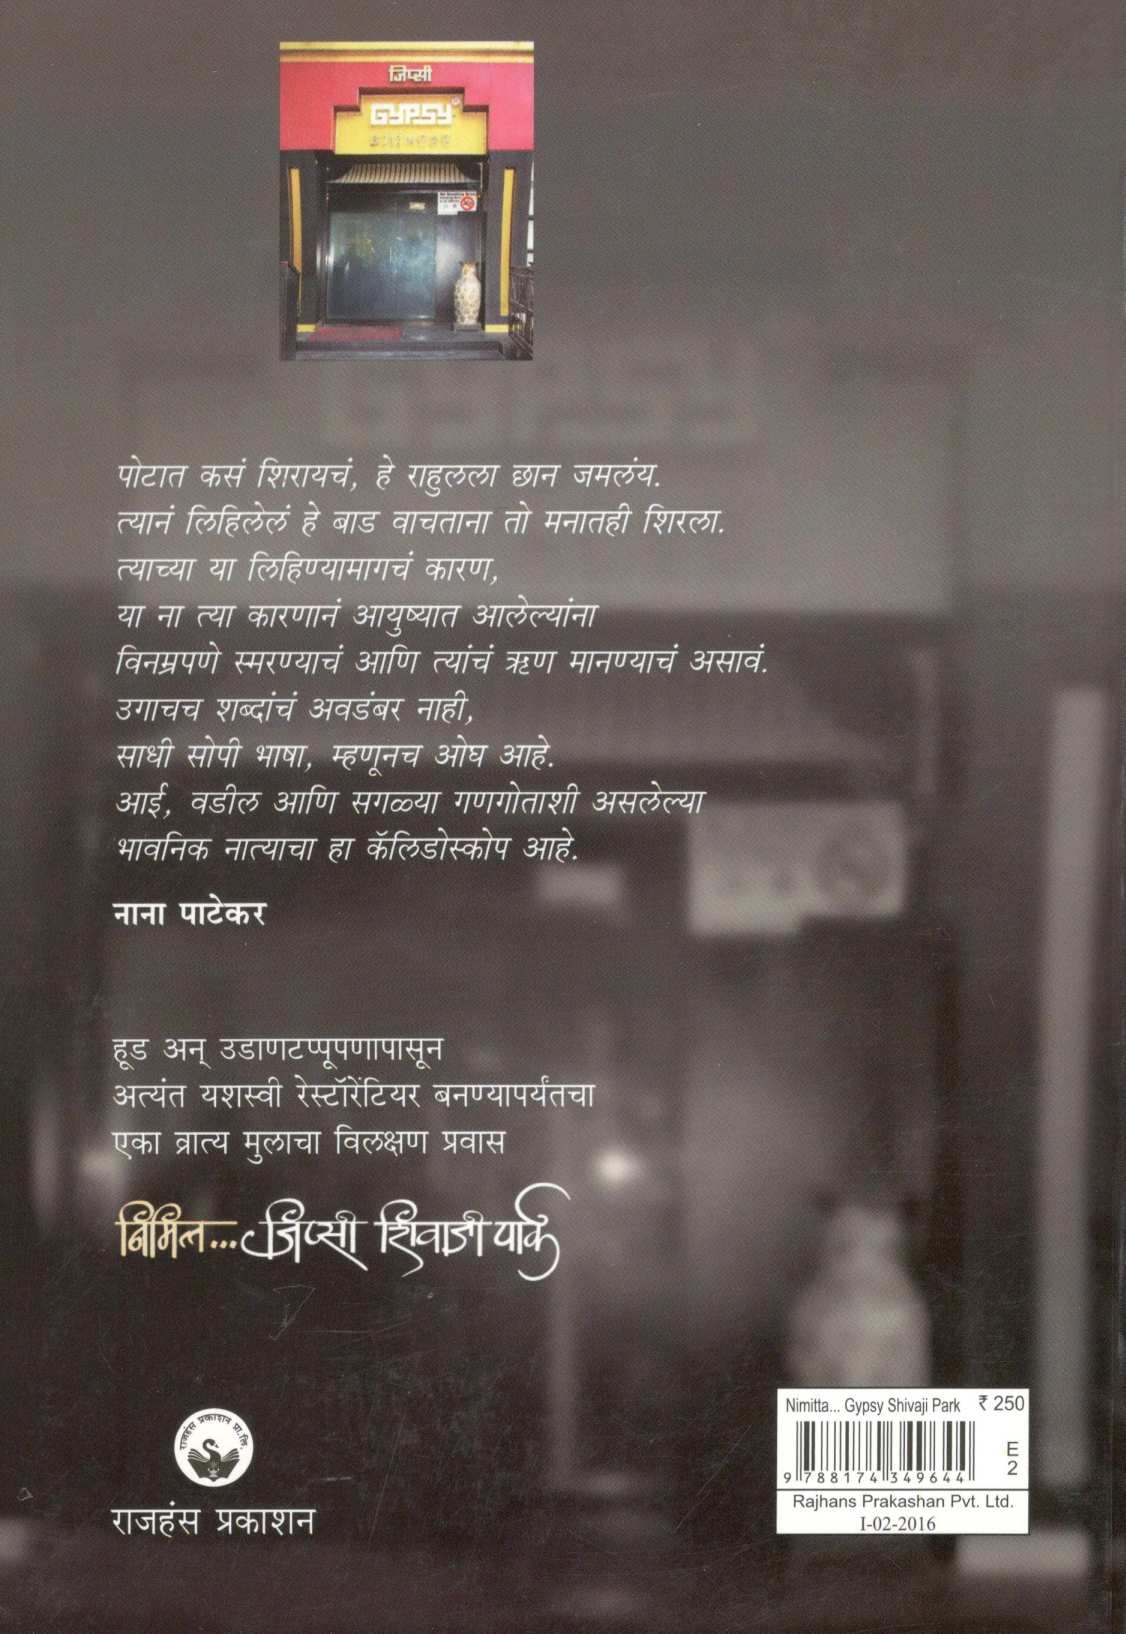 जिप्सी
GYPSY
पोटात कसं शिरायचं, हे राहुलला छान जमलंय.
त्यानं लिहिलेलं हे बाड वाचताना तो मनातही शिरला.
त्याच्या या लिहिण्यामागचं कारण,
या ना त्या कारणानं आयुष्यात आलेल्यांना
विनम्रपणे स्मरण्याचं आणि त्यांचं ऋण मानण्याचं असावं.
उगाचच शब्दांचं अवडंबर नाही,
साधी सोपी भाषा, म्हणूनच ओघ आहे.
आई, वडील आणि सगळ्या गणगोताशी असलेल्या
भावनिक नात्याचा हा कॅलिडोस्कोप आहे.
नाना पाटेकर
हूड अन् उडाणटप्पूपणापासून
अत्यंत यशस्वी रेस्टॉरेंटियर बनण्यापर्यंतचा
एका व्रात्य मुलाचा विलक्षण प्रवास
निमित्त... जिप्सी शिवाजी पार्क
राजहंस प्रकाशन प्रा.लि.
राजहंस प्रकाशन
Nimitta... Gypsy Shivaji Park ₹ 250
E
2
9 788174 349644
Rajhans Prakashan Pvt. Ltd.
I-02-2016